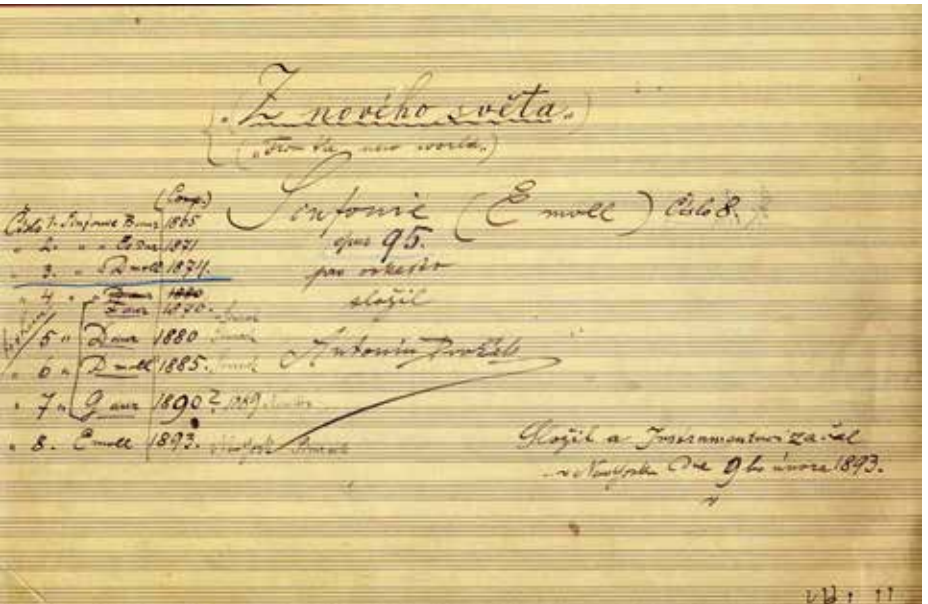 „Z nového světa.“
(„From the new world.“)
Sinfonie (E moll) Číslo 8.
opus 95.
pro orkestr
složil
Antonín Dvořák
(Comp.)
Číslo 1. Sinfonie B dur 1865
" 2. " " Es dur 1871
" 3. " D moll 1874.
" 4 " " 1880
F dur 1870.
" 5 " D dur 1880
" 6 " D moll 1885.
" 7 " G dur 1890? 1889
" 8. E moll 1893. New York
Složil a Instrumentovati začal
v New Yorku dne 9ho února 1893.